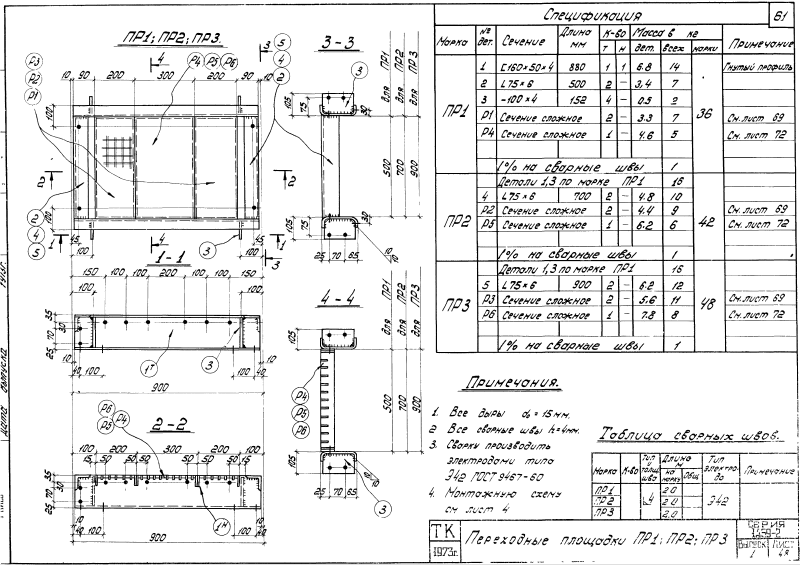 Спецификация
61
Марка № дет. Сечение Длина мм К-во Масса в кг Примечание
т н дет. всех марки
ПР1
1 [160×50×4 880 1 1 6.8 14 Гнутый профиль
2 L75×6 500 2 – 3.4 7
3 -100×4 152 4 – 0.5 2
Р1 Сечение сложное 2 – 3.3 7 См. лист 69
Р4 Сечение сложное 1 – 4.6 5 См. лист 72
36
1% на сварные швы 1
ПР2
Детали 1,3 по марке ПР1 16
4 L75×6 700 2 – 4.8 10
Р2 Сечение сложное 2 – 4.4 9 См. лист 69
Р5 Сечение сложное 1 – 6.2 6 См. лист 72
42
1% на сварные швы 1
ПР3
Детали 1,3 по марке ПР1 16
5 L75×6 900 2 – 6.2 12
Р3 Сечение сложное 2 – 5.6 11 См. лист 69
Р6 Сечение сложное 1 – 7.8 8 См. лист 72
48
1% на сварные швы 1
ПР1; ПР2; ПР3.
Р3
Р2
Р1
Р4 Р5 Р6
3
4
5
4
2
10 90 200 300 200 90 10
100
2
2
2
4
5
1
4
3
1
3
45
100
45
100
3-3
для ПР1
для ПР2
для ПР3
3
105
75
30
500
700
900
105
75
30
10
10
25 70 65
1-1
150 100 100 200 100 100 150
100
100
35
30
70
25
1т
3
10
40
100
100
40
10
900
4-4
для ПР1
для ПР2
для ПР3
105
Р4
Р5
Р6
500
700
900
25 70 65
3
2-2
Р6
Р5
Р4
100 200 300 200 100
15 50 50 50 50 15
35
30
70
25
1н
10
40
100
100
40
10
900
Примечания.
1. Все дыры d₀ = 15мм.
2 Все сварные швы h=4мм.
3. Сварку производить
электродами типа
Э42 ГОСТ 9467-60
4. Монтажную схему
см лист 4
Таблица сварных швов.
Марка К-во Тип и толщ. шва Длина м Тип электрода Примечание
на марку Общ.
ПР1 2.0
ПР2 4 2.0 Э42
ПР3 2.0
ТК
1973г.
Переходные площадки ПР1; ПР2; ПР3
СЕРИЯ
1.459-2
Выпуск Лист
1 48